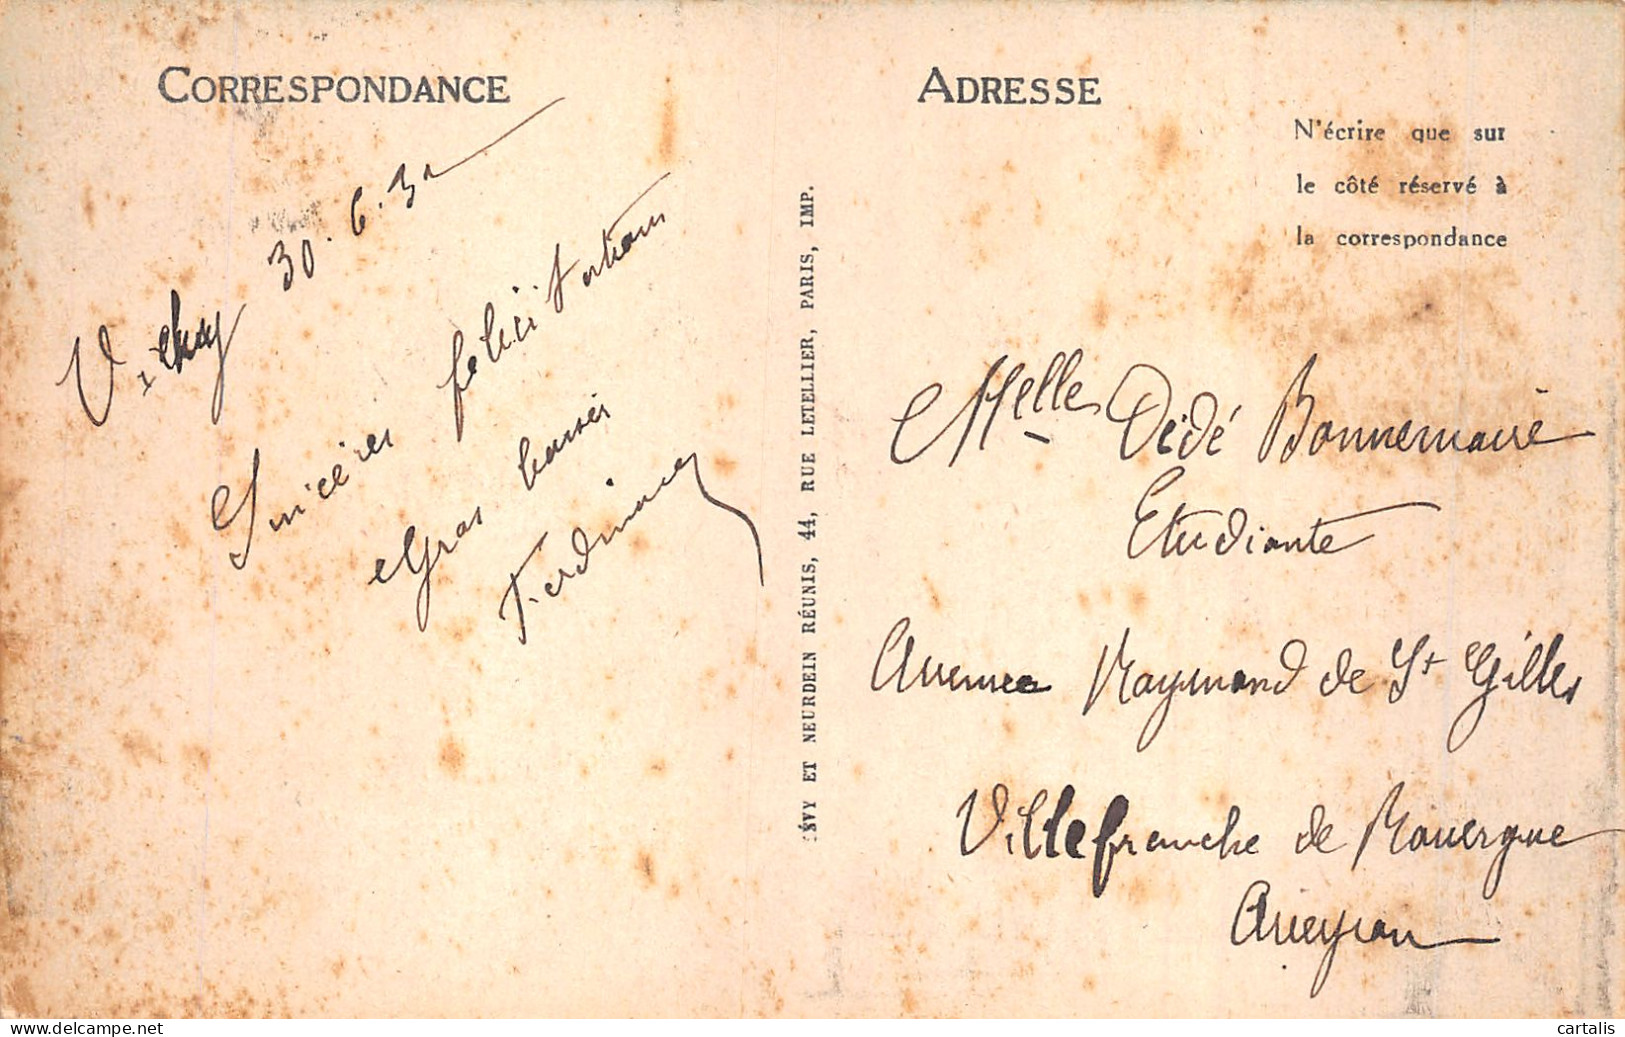 CORRESPONDANCE
Vichy 30.6.3
Sincères félicitations
Gros baisers
Ferdinand
ÉVY ET NEURDEIN RÉUNIS, 44, RUE LETELLIER, PARIS, IMP.
ADRESSE
N'écrire que sur
le côté réservé à
la correspondance
Melle Dédé Bonnemaire
Etudiante
Avenue Raymond de St Gilles
Villefranche de Rouergue
Aveyron
cartalis